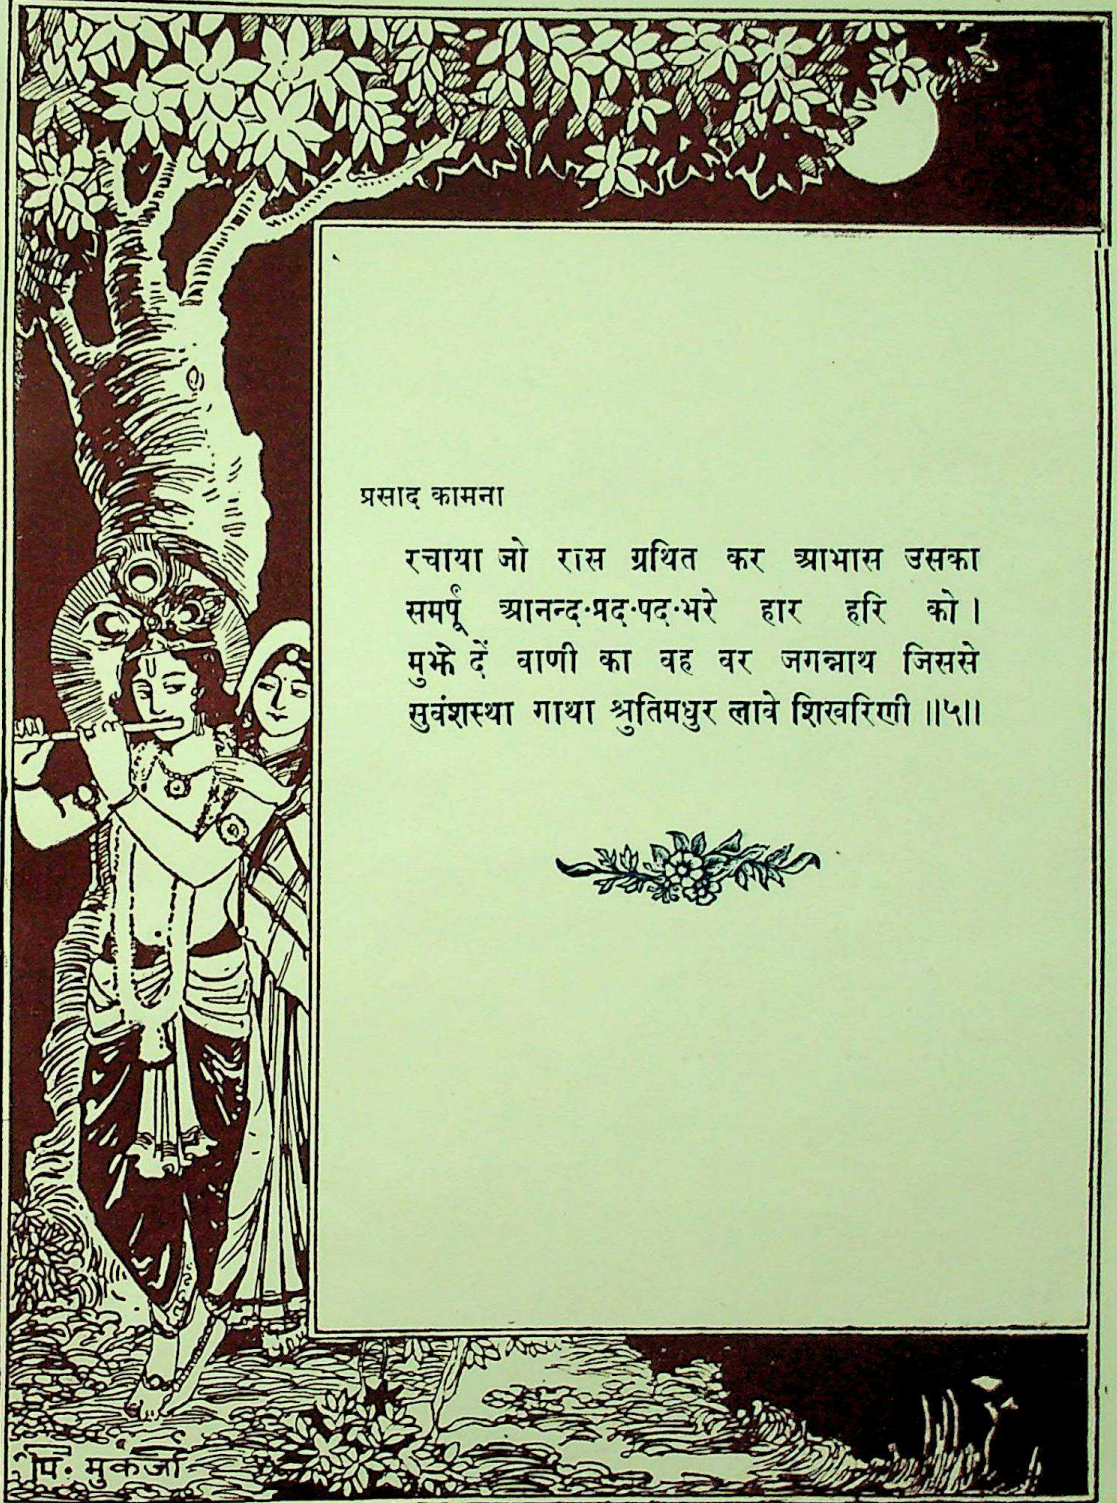 प्रसाद कामना
रचाया जो रास ग्रथित कर आभास उसका
समर्पूं आनन्द·प्रद·पद·भरे हार हरि को ।
मुझे दें वाणी का वह वर जगन्नाथ जिससे
सुवंशस्था गाथा श्रुतिमधुर लावे शिखरिणी ॥५॥
पि. मुकर्जी